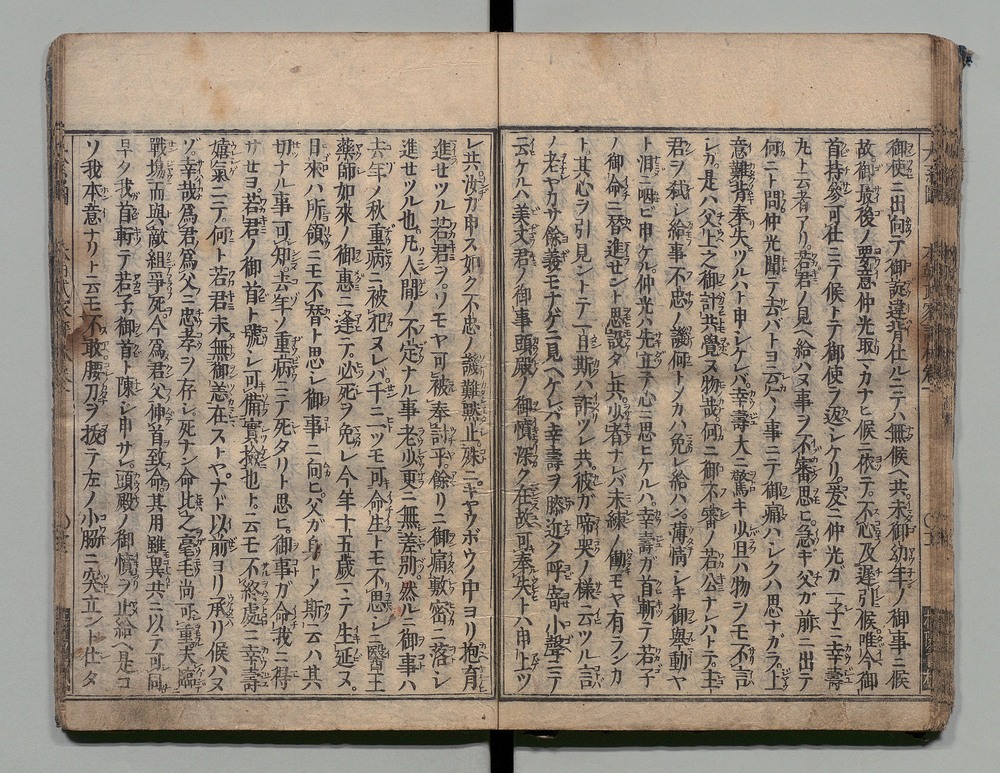 御使ニ出向テ御諚違背仕ルニテハ無候ヘ共未御幼年ノ御事ニ候
故御最後ノ要意仲光取マカナヒ候ニ依テ不心及遅引候唯今御
首持參可仕ニテ候トテ御使ヲ返シケリ爰ニ仲光カ一子ニ幸壽
丸ト云者アリ若君ノ見ヘ給ハヌ事ヲ不審思ヒ急ギ父ガ前ニ出テ
何ニト問仲光聞テ去バトヨ云々ノ事ニテ御痛ハシクハ思ナガラ上
意難背奉失ツルハト申シケレバ幸壽大ニ驚キ少旦ハ物ヲモ不言
レカ是ハ父上之御計共覺ヌ物哉何ニ御不審ノ若公ナレハトテ主
君ヲ弑シ給事不忠ノ譏何トノカハ免レ給ハン薄情シキ御擧動ヤ
ト泪ニ咽ビ申ケル仲光ハ先立テ心ニ思ヒケルハ幸壽ガ首斬テ若子
ノ御命ニ替進セント思設タレ共少者ナレバ未練ノ働モヤ有ランカ
ト其心ヲ引見ントテ一旦斯ハ詐ツレ共彼ガ啼哭ノ様ニ云ツル言
ノ老ヤカサ餘義モナゲニ見ヘケレバ幸壽ヲ膝近ク呼寄小聲ニテ
云ケルハ美丈君ノ御事頭殿ノ御憤深ク在故可奉失ト八申上ツ
レ共汝カ申ス如ク不忠ノ譏難黙止殊ニキヤウボウノ中ヨリ抱育
進セツル若君ヲソモヤ可被奉討乎餘リニ御痛敷密ニ落シ
進セツル也凡人間ノ不定ナル事老少更ニ無差別然ルニ御事ハ
去年ノ秋重病ニ被犯ヌレバ千ニ一ツモ可命生トモ不思シニ醫王
藥師如來ノ御惠ニ逢テ必死ヲ免レ今年十五歳マテ生延ヌ
日來ハ所領ニモ不替ト思シ御事ニ向ヒ父ガ身トノ斯云ハ其
切ナル事可知去年ノ重病ニテ死タリト思ヒ御事ガ命我ニ得
サセヨ若君ノ御首ト號シ可備實撿也ト云モ不終處ニ幸壽
嬉氣ニテ何ト若君未無御恙在ストヤナド以前ヨリ承リ候ハヌ
ゾ幸哉爲君爲父ニ忠孝ヲ存シ死ナン命比之毫毛尚可重夫臨
戰塲而與敵組爭死今爲君父伸首致命其用雖異共ニ以テ可同
早ク我首斬テ若子ノ御首ト陳シ申サレ頭殿ノ御憤ヲ止給ヘ是コ
ソ我本意ナリト云モ不敢腰刀ヲ抜テ左ノ小脇ニ突立ント仕タ